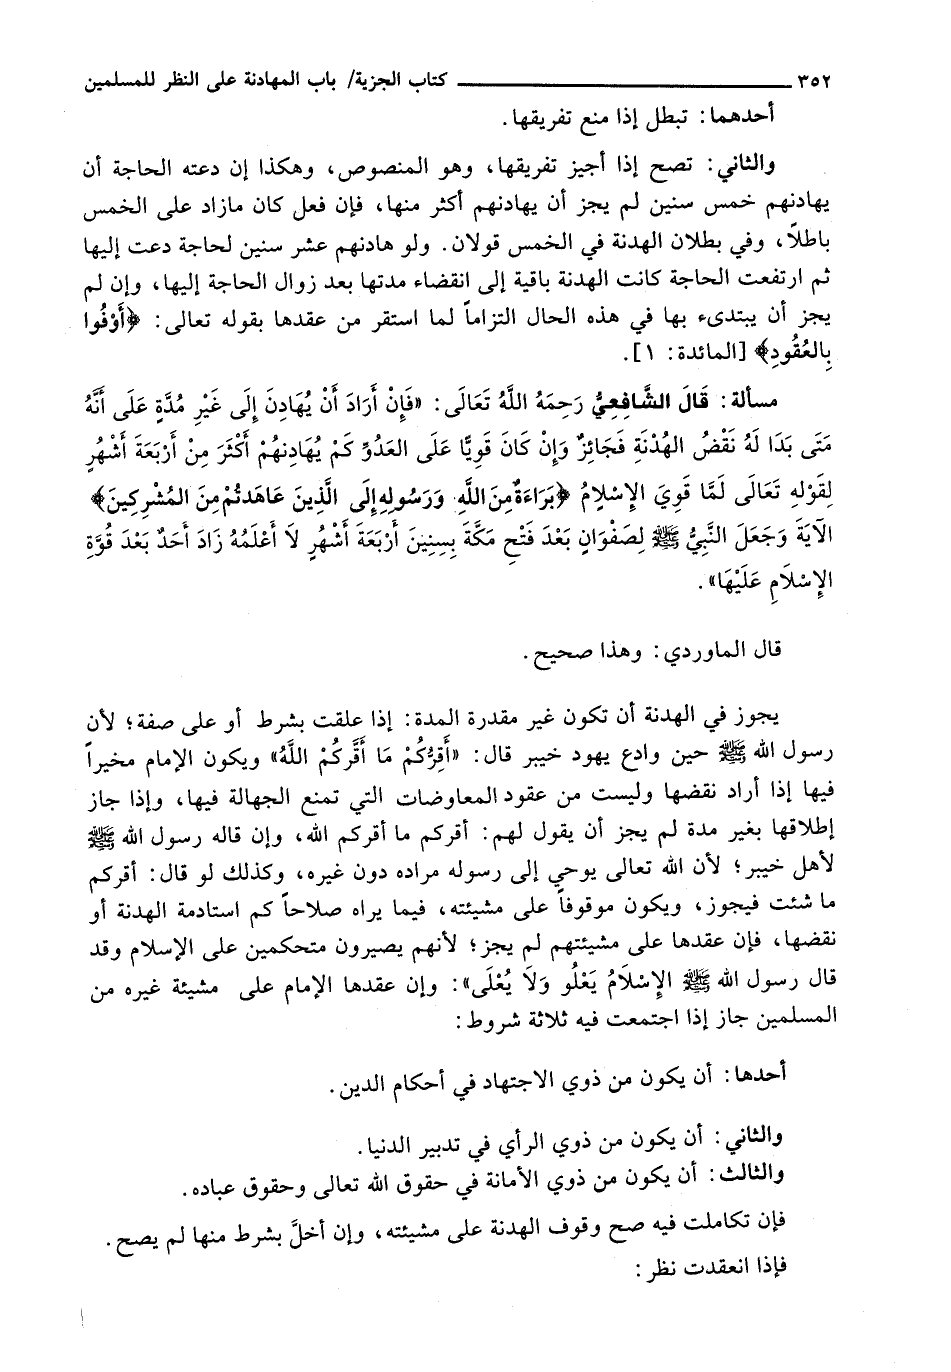 ٣٥٢ كتاب الجزية/ باب المهادنة على النظر للمسلمين
أحدهما: تبطل إذا منع تفريقها.
والثاني: تصح إذا أجيز تفريقها، وهو المنصوص، وهكذا إن دعته الحاجة أن
يهادنهم خمس سنين لم يجز أن يهادنهم أكثر منها، فإن فعل كان مازاد على الخمس
باطلاً، وفي بطلان الهدنة في الخمس قولان. ولو هادنهم عشر سنين لحاجة دعت إليها
ثم ارتفعت الحاجة كانت الهدنة باقية إلى انقضاء مدتها بعد زوال الحاجة إليها، وإن لم
يجز أن يبتدىء بها في هذه الحال التزاماً لما استقر من عقدها بقوله تعالى: ﴿أَوْفُوا
بِالعُقُودِ﴾ [المائدة: ١].
مسألة: قَالَ الشَّافِعِيُّ رَحِمَهُ اللَّهُ تَعَالَى: «فَإِنْ أَرَادَ أَنْ يُهَادِنَ إِلَى غَيْرِ مُدَّةٍ عَلَى أَنَّهُ
مَتَى بَدَا لَهُ نَقْضُ الهُدْنَةِ فَجَائِزٌ وَإِنْ كَانَ قَوِيًّا عَلَى العَدُوِّ كَمْ يُهَادِنهُمْ أَكْثَرَ مِنْ أَرْبَعَةَ أَشْهُرٍ
لِقَوْلِهِ تَعَالَى لَمَّا قَوِيَ الإِسْلاَمُ ﴿بَرَاءَةٌ مِنَ اللَّهِ وَرَسُولِهِ إِلَى الَّذِينَ عَاهَدتُمْ مِنَ المُشْرِكِينَ﴾
الآيَةَ وَجَعَلَ النَّبِيُّ ﷺ لِصَفْوَانٍ بَعْدَ فَتْحِ مَكَّةَ بِسِنِينَ أَرْبَعَةَ أَشْهُرٍ لاَ أَعْلَمُهُ زَادَ أَحَدٌ بَعْدَ قُوَّةِ
الإِسْلاَمِ عَلَيْهَا».
قال الماوردي: وهذا صحيح.
يجوز في الهدنة أن تكون غير مقدرة المدة: إذا علقت بشرط أو على صفة؛ لأن
رسول الله ﷺ حين وادع يهود خيبر قال: «أَقِرُّكُمْ مَا أَقَرَّكُمْ اللَّهُ» ويكون الإمام مخيراً
فيها إذا أراد نقضها وليست من عقود المعاوضات التي تمنع الجهالة فيها، وإذا جاز
إطلاقها بغير مدة لم يجز أن يقول لهم: أقركم ما أقركم الله، وإن قاله رسول الله ﷺ
لأهل خيبر؛ لأن الله تعالى يوحي إلى رسوله مراده دون غيره، وكذلك لو قال: أقركم
ما شئت فيجوز، ويكون موقوفاً على مشيئته، فيما يراه صلاحاً كم استادمة الهدنة أو
نقضها، فإن عقدها على مشيئتهم لم يجز؛ لأنهم يصيرون متحكمين على الإسلام وقد
قال رسول الله ﷺ الإِسْلاَمُ يَعْلُو وَلاَ يُعْلَى»: وإن عقدها الإمام على مشيئة غيره من
المسلمين جاز إذا اجتمعت فيه ثلاثة شروط:
أحدها: أن يكون من ذوي الاجتهاد في أحكام الدين.
والثاني: أن يكون من ذوي الرأي في تدبير الدنيا.
والثالث: أن يكون من ذوي الأمانة في حقوق الله تعالى وحقوق عباده.
فإن تكاملت فيه صح وقوف الهدنة على مشيئته، وإن أخلَّ بشرط منها لم يصح.
فإذا انعقدت نظر: